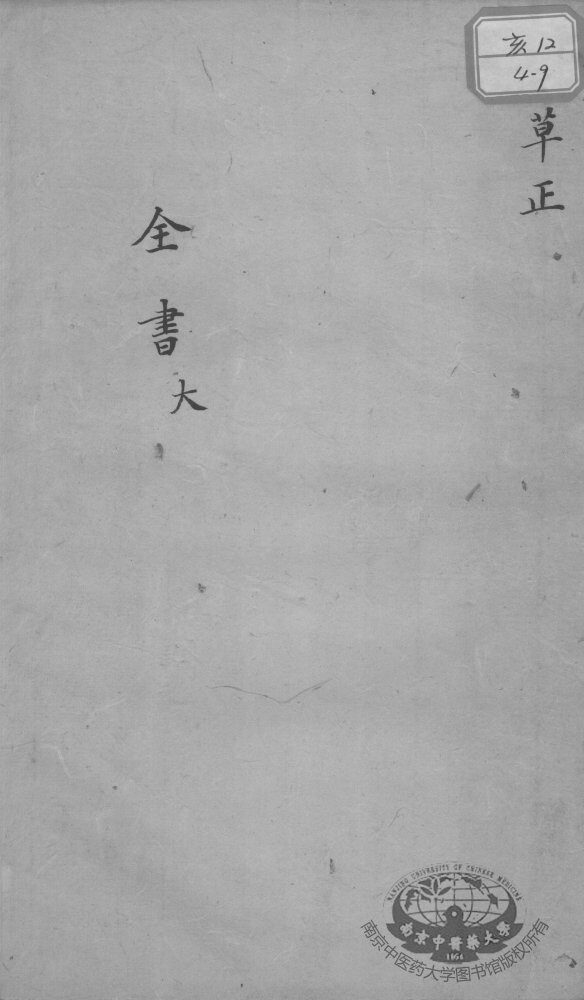 亥12
4-9
草正
全書大
NANJING UNIVERSITY OF CHINESE MEDICINE
南京中醫藥大學
1954
南京中医药大学图书馆版权所有